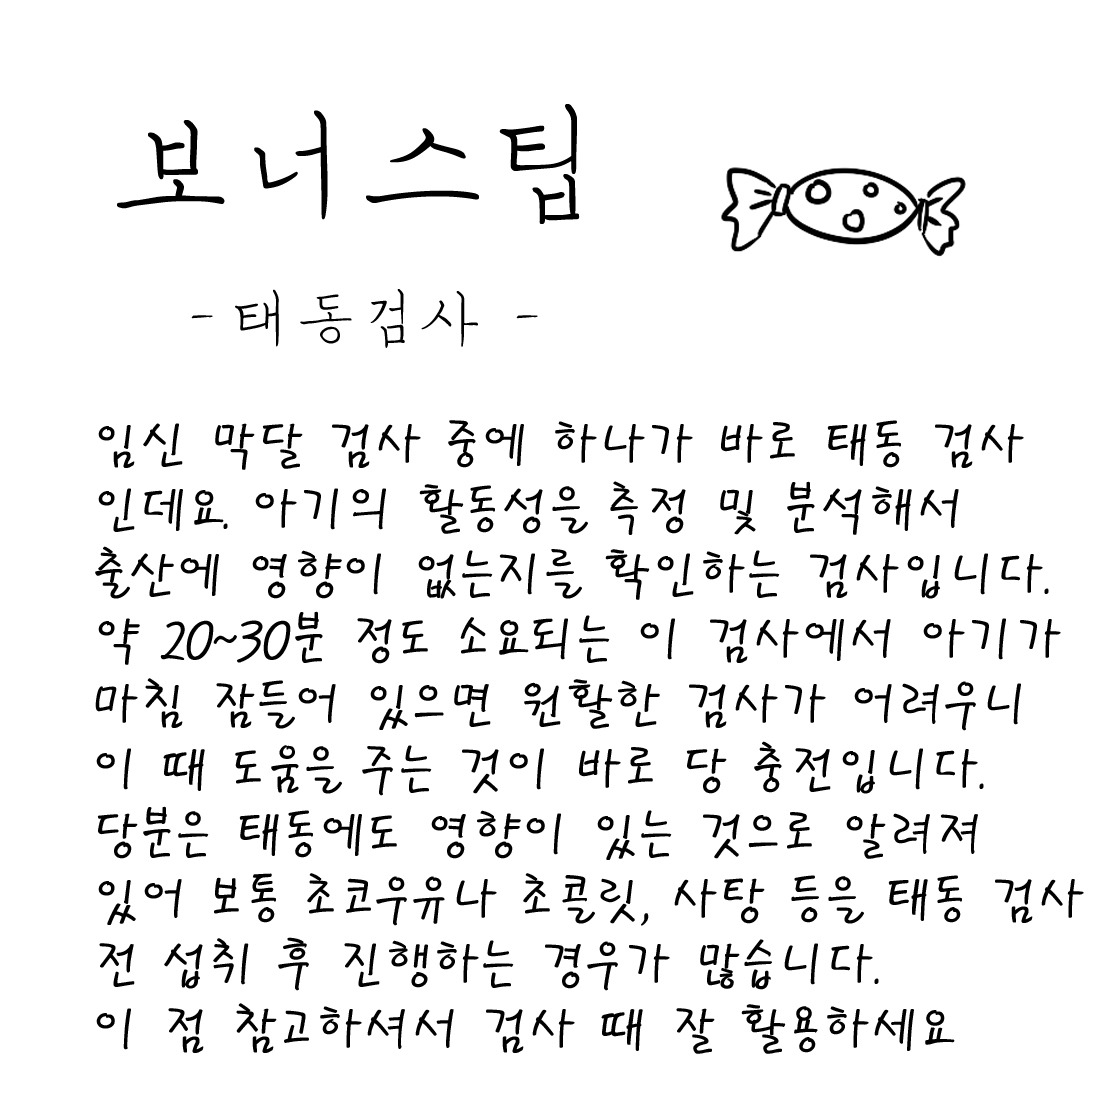 보너스팁
- 태동검사 -
임신 막달 검사 중에 하나가 바로 태동 검사
인데요. 아기의 활동성을 측정 및 분석해서
출산에 영향이 없는지를 확인하는 검사입니다.
약 20~30분 정도 소요되는 이 검사에서 아기가
마침 잠들어 있으면 원활한 검사가 어려우니
이 때 도움을 주는 것이 바로 당 충전입니다.
당분은 태동에도 영향이 있는 것으로 알려져
있어 보통 초코우유나 초콜릿, 사탕 등을 태동 검사
전 섭취 후 진행하는 경우가 많습니다.
이 점 참고하셔서 검사 때 잘 활용하세요